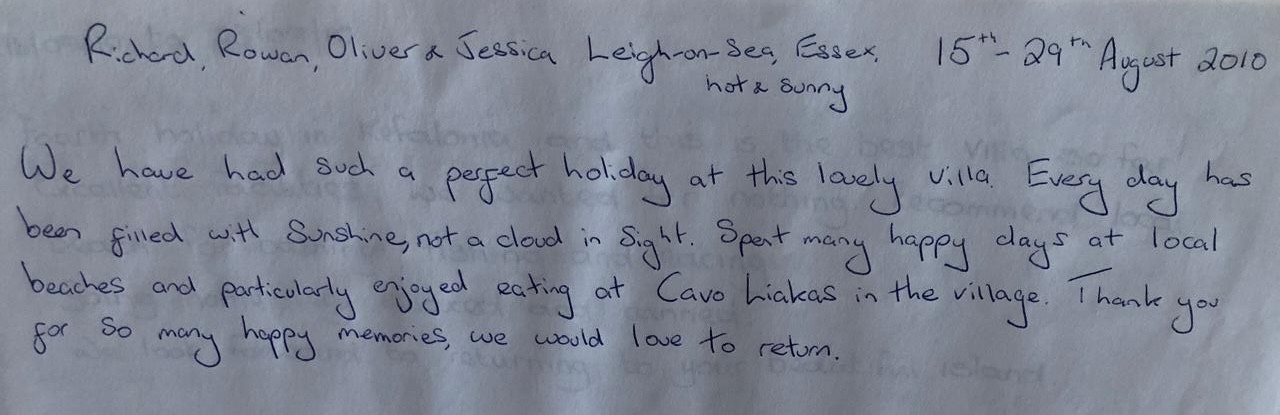 Richard, Rowan, Oliver & Jessica Leigh-on-Sea, Essex. 15th - 29th August 2010
hot & sunny
We have had such a perfect holiday at this lovely villa. Every day has
been filled with sunshine, not a cloud in sight. Spent many happy days at local
beaches and particularly enjoyed eating at Cavo Liakas in the village. Thank you
for so many happy memories, we would love to return.